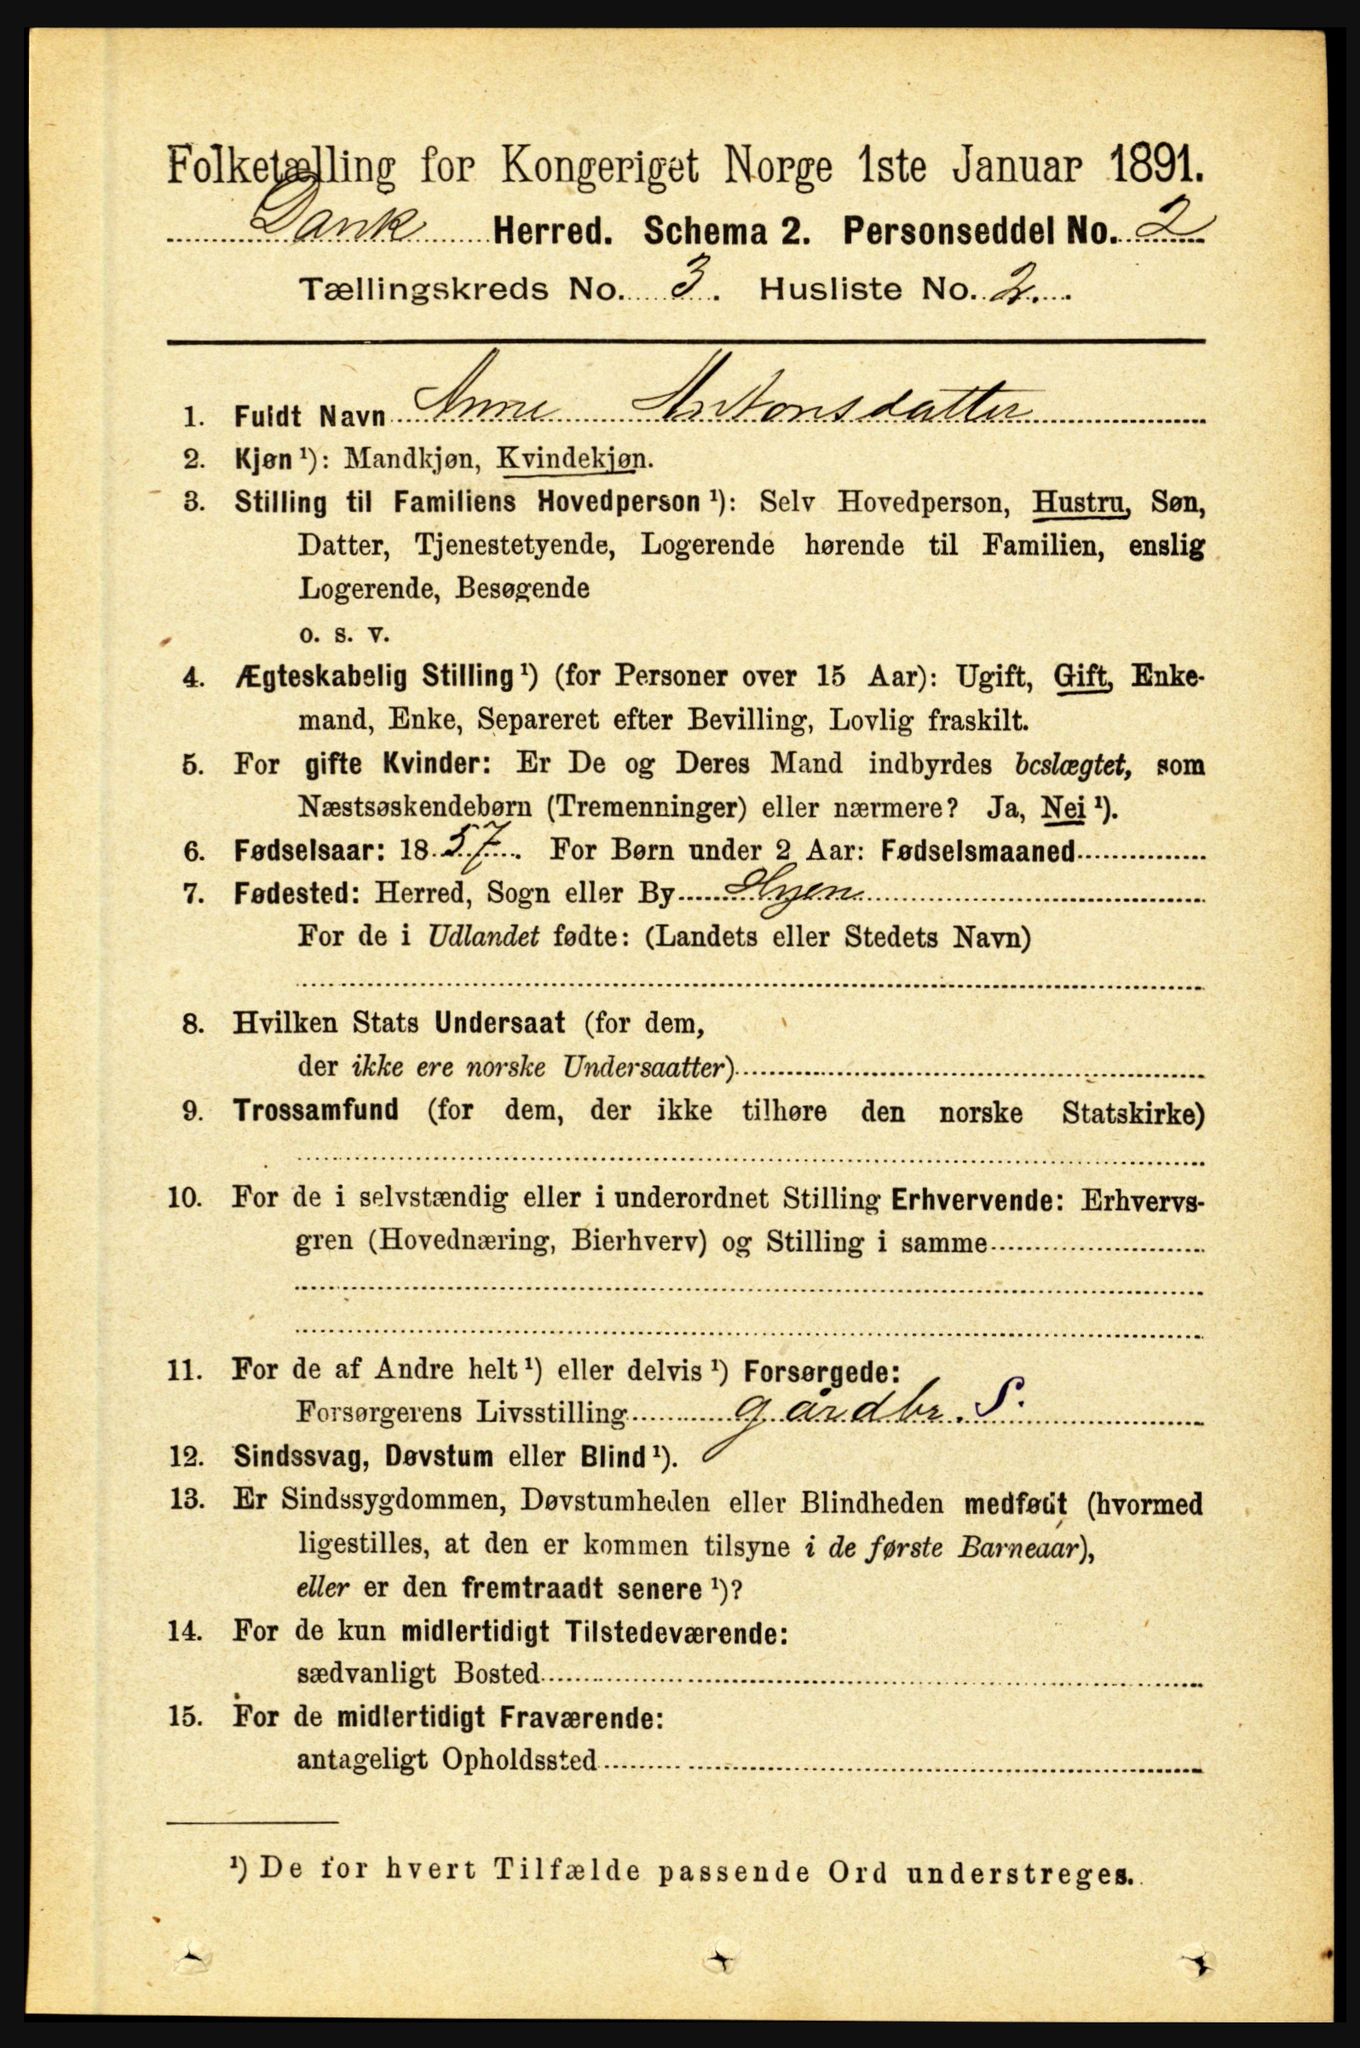 Folketælling for Kongeriget Norge 1ste Januar 1891.
Dank Herred. Schema 2. Personseddel No. 2
Tællingskreds No. 3. Husliste No. 2.
1. Fuldt Navn Anne Antonsdatter
2. Kjøn ¹): Mandkjøn, Kvindekjøn.
3. Stilling til Familiens Hovedperson ¹): Selv Hovedperson, Hustru, Søn,
Datter, Tjenestetyende, Logerende hørende til Familien, enslig
Logerende, Besøgende
o. s. v.
4. Ægteskabelig Stilling ¹) (for Personer over 15 Aar): Ugift, Gift, Enke-
mand, Enke, Separeret efter Bevilling, Lovlig fraskilt.
5. For gifte Kvinder: Er De og Deres Mand indbyrdes beslægtet, som
Næstsøskendebørn (Tremenninger) eller nærmere? Ja, Nei ¹).
6. Fødselsaar: 1857. For Børn under 2 Aar: Fødselsmaaned
7. Fødested: Herred, Sogn eller By Hyen
For de i Udlandet fødte: (Landets eller Stedets Navn)
8. Hvilken Stats Undersaat (for dem,
der ikke ere norske Undersaatter)
9. Trossamfund (for dem, der ikke tilhøre den norske Statskirke)
10. For de i selvstændig eller i underordnet Stilling Erhvervende: Erhvervs-
gren (Hovednæring, Bierhverv) og Stilling i samme
11. For de af Andre helt ¹) eller delvis ¹) Forsørgede:
Forsørgerens Livsstilling gårdbr. S.
12. Sindssvag, Døvstum eller Blind ¹).
13. Er Sindssygdommen, Døvstumheden eller Blindheden medfødt (hvormed
ligestilles, at den er kommen tilsyne i de første Barneaar),
eller er den fremtraadt senere ¹)?
14. For de kun midlertidigt Tilstedeværende:
sædvanligt Bosted
15. For de midlertidigt Fraværende:
antageligt Opholdssted
¹) De for hvert Tilfælde passende Ord understreges.